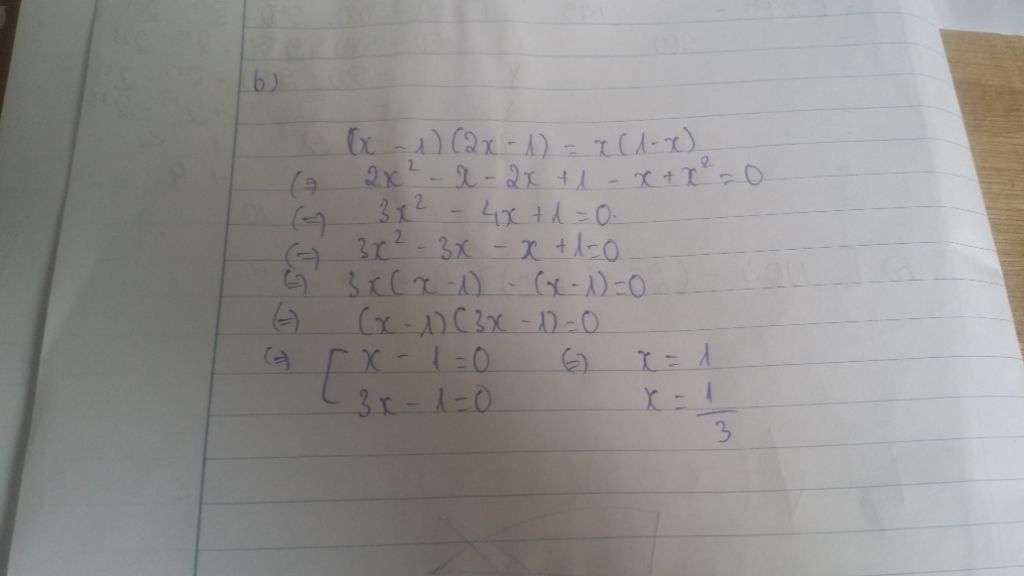 b)
(x - 1)(2x - 1) = x(1-x)
(=) 2x² - x - 2x + 1 - x + x² = 0
(=) 3x² - 4x + 1 = 0.
(=) 3x² - 3x - x + 1 = 0
(=) 3x(x - 1) - (x - 1) = 0
(=) (x - 1)(3x - 1) = 0
(=) [ x - 1 = 0 (=) x = 1
3x - 1 = 0 x = 1/3